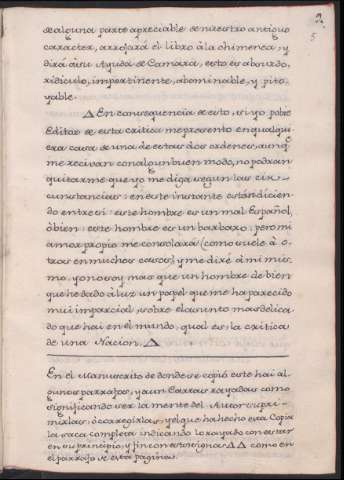 2
5
de alguna parte apreciable de nuestro antiguo
caracter, arrojará el libro à la chimenea, y
dirá à su Ayuda de Camara, esto es absurdo,
ridiculo, impertinente, abominable, y pito
yable.
Δ En consequencia de esto, si yo pobre
Editor de esta critica me presento en qualqui
era casa de una de estas dos ordenes, aunq.
me reciván con algun buen modo, no podran
quitarme que yo me diga segun las cir
cunstancias: en este instante están dicien
do entre si: este hombre es un mal Español,
ò bien: este hombre es un barbaro; pero mi
amor propio me consolará (como suele à o
tros en muchos casos) y me diré à mi mis
mo: yo no soy mas que un hombre de bien
que he dado à luz un papel que me ha parecido
mui imparcial, sobre el asunto mas delica
do que hai en el mundo, qual es la critica
de una Nacion. Δ
En el Manuscrito de donde se copió este hai al
gunos parrafos, y aun Cartas rayadas como
significando ser la mente del Autor supri
mirlas; ò corregirlas; y el que ha hecho esta Copia
la saca completa indicando lo rayado con estar
en su principio, y fin con estos signos Δ Δ como en
el parrafo de esta pagina.